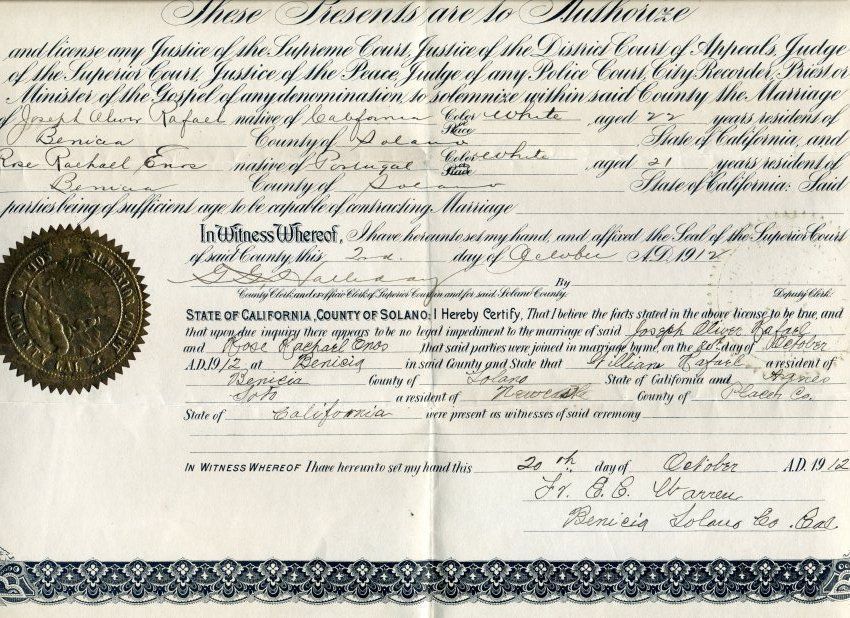 These Presents are to Authorize
and license any Justice of the Supreme Court, Justice of the District Court of Appeals, Judge
of the Superior Court, Justice of the Peace, Judge of any Police Court, City Recorder, Priest or
Minister of the Gospel of any denomination, to solemnize within said County the Marriage
of Joseph Oliver Rafael native of California Color or Race White, aged 22 years resident of
Benicia County of Solano State of California, and
Rose Rachael Enos native of Portugal Color or Race White, aged 21 years resident of
Benicia County of Solano State of California: Said
parties being of sufficient age to be capable of contracting Marriage
In Witness Whereof, I have hereunto set my hand, and affixed the Seal of the Superior Court
of said County, this 2nd. day of October A.D. 1912
G. G. Halliday By
County Clerk and ex-office Clerk of Superior Court in and for said Solano County. Deputy Clerk.
STATE OF CALIFORNIA, COUNTY OF SOLANO: I Hereby Certify, That I believe the facts stated in the above license to be true, and
that upon due inquiry there appears to be no legal impediment to the marriage of said Joseph Oliver Rafael
and Rose Rachael Enos, that said parties were joined in marriage by me, on the 20th day of October
A.D. 1912 at Benicia in said County and State that William Rafael a resident of
Benicia County of Solano State of California and Agnes
a resident of Newcastle County of Placer Co.
State of California were present as witnesses of said ceremony
IN WITNESS WHEREOF I have hereunto set my hand this 20th day of October A.D. 1912
Fr. E. C. Warren
Benicia Solano Co. Cal.